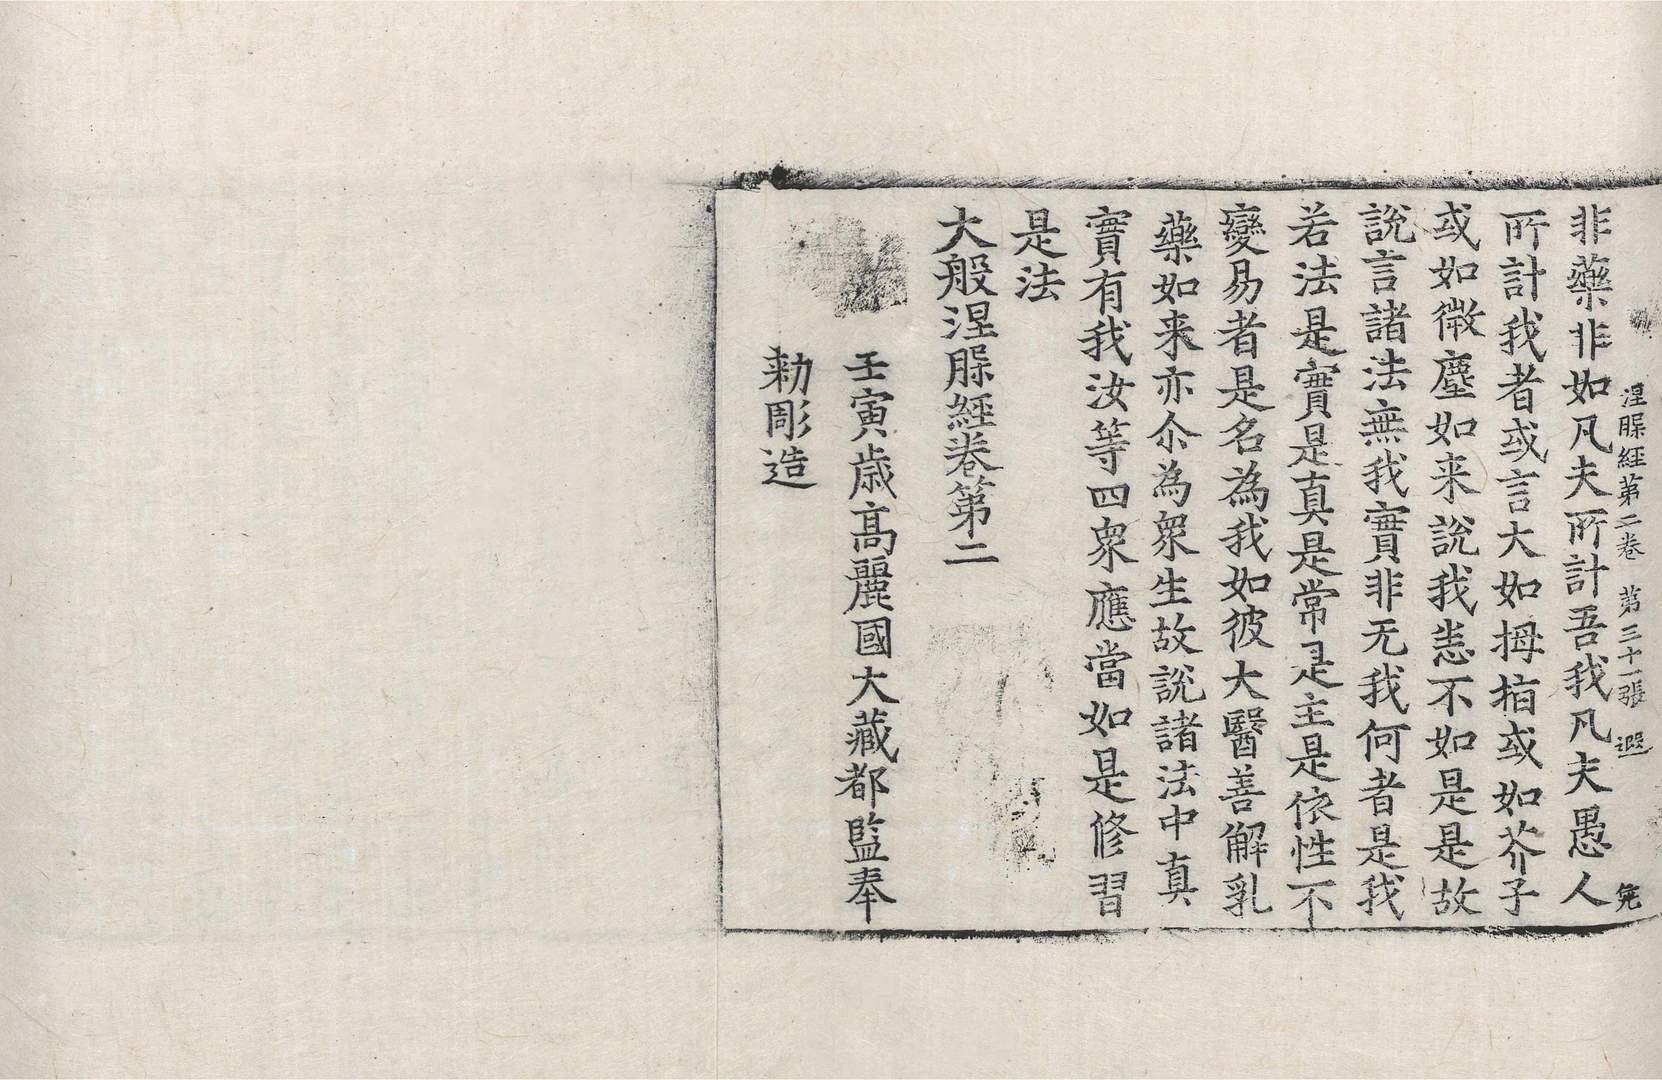 涅槃經第二卷 第三十一張 遐
非藥非如凡夫所計吾我凡夫愚人
所計我者或言大如拇指或如芥子
或如微塵如来說我悉不如是是故
說言諸法無我實非无我何者是我
若法是實是真是常是主是依性不
變易者是名為我如彼大醫善解乳
藥如来亦尒為衆生故說諸法中真
實有我汝等四衆應當如是修習
是法
大般涅槃經卷第二
壬寅歲高麗國大藏都監奉
勑彫造